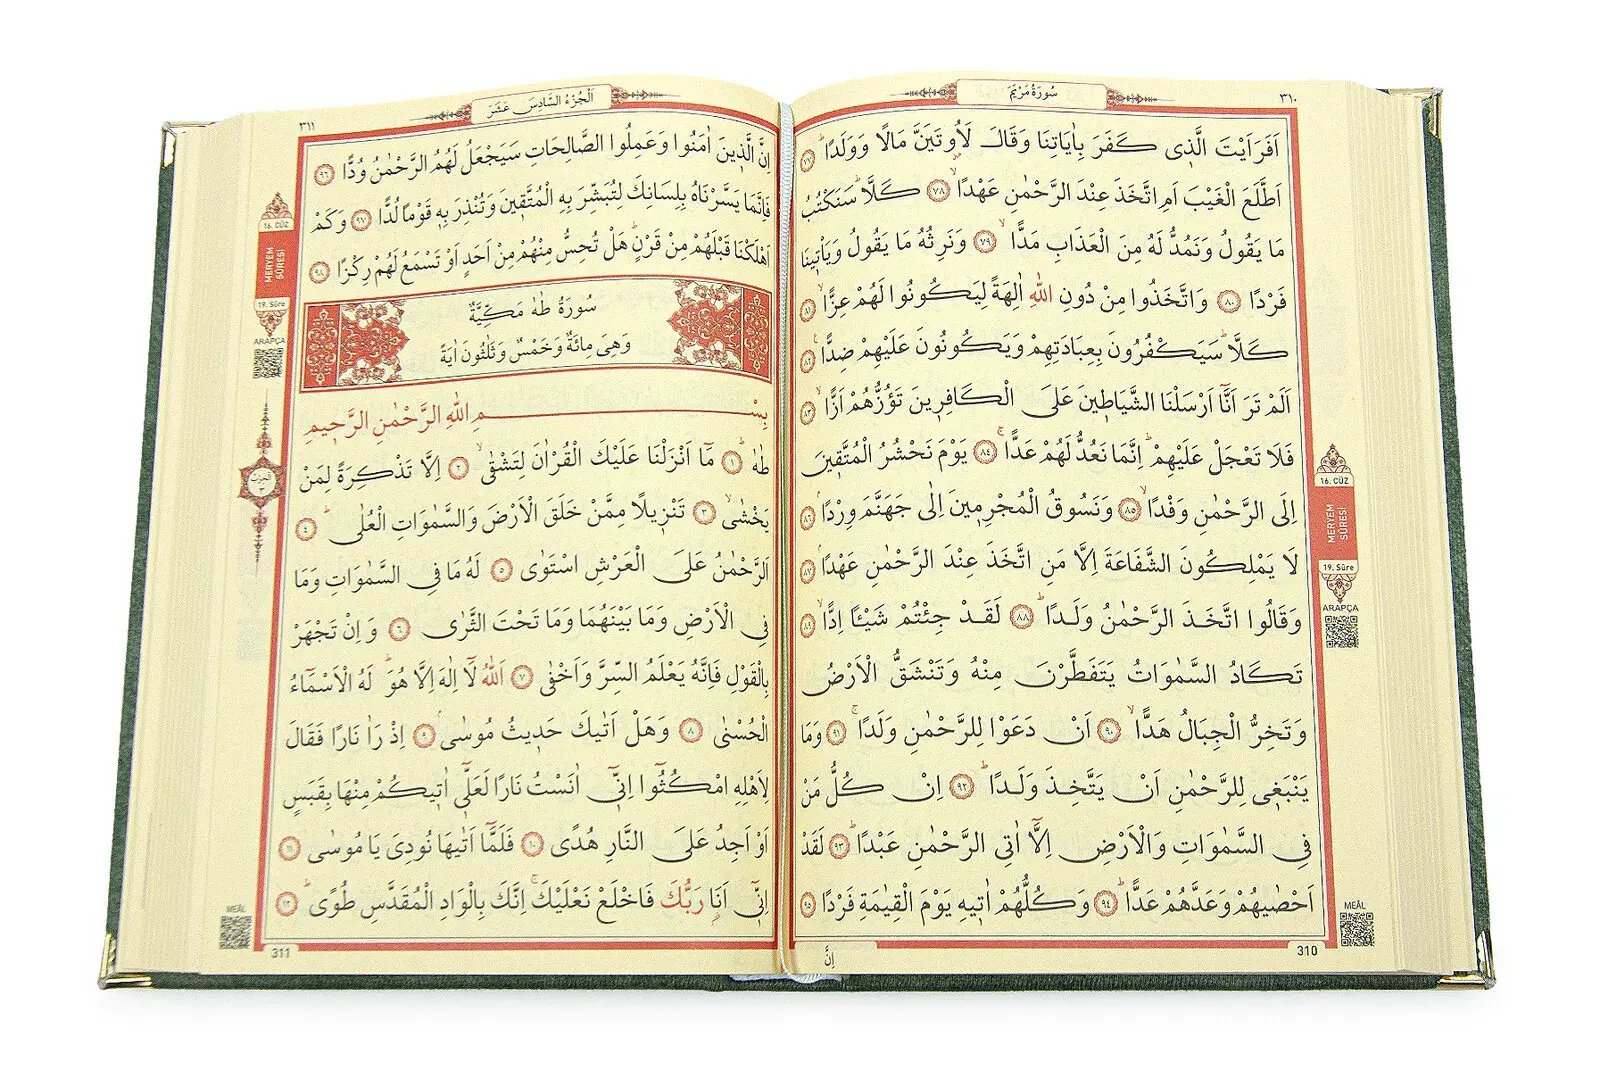 ٣١٠
سُورَةُ مَرْيَمَ
اَفَرَاَيْتَ الَّذ۪ي كَفَرَ بِاٰيَاتِنَا وَقَالَ لَاُو۫تَيَنَّ مَالًا وَوَلَدًاۜ ٧٧
اَطَّلَعَ الْغَيْبَ اَمِ اتَّخَذَ عِنْدَ الرَّحْمٰنِ عَهْدًاۙ ٧٨ كَلَّاۜ سَنَكْتُبُ
مَا يَقُولُ وَنَمُدُّ لَهُ مِنَ الْعَذَابِ مَدًّاۙ ٧٩ وَنَرِثُهُ مَا يَقُولُ وَيَأْت۪ينَا
فَرْدًا ٨٠ وَاتَّخَذُوا مِنْ دُونِ اللّٰهِ اٰلِهَةً لِيَكُونُوا لَهُمْ عِزًّاۙ ٨١
كَلَّاۜ سَيَكْفُرُونَ بِعِبَادَتِهِمْ وَيَكُونُونَ عَلَيْهِمْ ضِدًّا۟ ٨٢
اَلَمْ تَرَ اَنَّٓا اَرْسَلْنَا الشَّيَاط۪ينَ عَلَى الْكَافِر۪ينَ تَؤُزُّهُمْ اَزًّاۙ ٨٣
فَلَا تَعْجَلْ عَلَيْهِمْۜ اِنَّمَا نَعُدُّ لَهُمْ عَدًّاۚ ٨٤ يَوْمَ نَحْشُرُ الْمُتَّق۪ينَ
اِلَى الرَّحْمٰنِ وَفْدًاۙ ٨٥ وَنَسُوقُ الْمُجْرِم۪ينَ اِلٰى جَهَنَّمَ وِرْدًاۢ ٨٦
لَا يَمْلِكُونَ الشَّفَاعَةَ اِلَّا مَنِ اتَّخَذَ عِنْدَ الرَّحْمٰنِ عَهْدًاۢ ٨٧
وَقَالُوا اتَّخَذَ الرَّحْمٰنُ وَلَدًاۜ ٨٨ لَقَدْ جِئْتُمْ شَيْـًٔا اِدًّاۙ ٨٩
تَكَادُ السَّمٰوَاتُ يَتَفَطَّرْنَ مِنْهُ وَتَنْشَقُّ الْاَرْضُ
وَتَخِرُّ الْجِبَالُ هَدًّاۙ ٩٠ اَنْ دَعَوْا لِلرَّحْمٰنِ وَلَدًاۚ ٩١ وَمَا
يَنْبَغ۪ي لِلرَّحْمٰنِ اَنْ يَتَّخِذَ وَلَدًاۜ ٩٢ اِنْ كُلُّ مَنْ
فِي السَّمٰوَاتِ وَالْاَرْضِ اِلَّٓا اٰتِي الرَّحْمٰنِ عَبْدًاۜ ٩٣ لَقَدْ
اَحْصٰيهُمْ وَعَدَّهُمْ عَدًّاۜ ٩٤ وَكُلُّهُمْ اٰت۪يهِ يَوْمَ الْقِيٰمَةِ فَرْدًا ٩٥
اِنَّ
310
16. CÜZ
MERYEM
SÛRESİ
19. Sûre
ARAPÇA
MEÂL
اَلْجُزْءُ السَّادِسَ عَشَرَ
٣١١
اِنَّ الَّذ۪ينَ اٰمَنُوا وَعَمِلُوا الصَّالِحَاتِ سَيَجْعَلُ لَهُمُ الرَّحْمٰنُ وُدًّا ٩٦
فَاِنَّمَا يَسَّرْنَاهُ بِلِسَانِكَ لِتُبَشِّرَ بِهِ الْمُتَّق۪ينَ وَتُنْذِرَ بِه۪ قَوْمًا لُدًّا ٩٧ وَكَمْ
اَهْلَكْنَا قَبْلَهُمْ مِنْ قَرْنٍۜ هَلْ تُحِسُّ مِنْهُمْ مِنْ اَحَدٍ اَوْ تَسْمَعُ لَهُمْ رِكْزًا ٩٨
سُورَةُ طٰهٰ مَكِّيَّةٌ
وَهِيَ مِائَةٌ وَخَمْسٌ وَثَلٰثُونَ اٰيَةً
بِسْمِ اللّٰهِ الرَّحْمٰنِ الرَّح۪يمِ
طٰهٰۜ ١ مَٓا اَنْزَلْنَا عَلَيْكَ الْقُرْاٰنَ لِتَشْقٰىۙ ٢ اِلَّا تَذْكِرَةً لِمَنْ
يَخْشٰىۙ ٣ تَنْز۪يلًا مِمَّنْ خَلَقَ الْاَرْضَ وَالسَّمٰوَاتِ الْعُلٰىۜ ٤
اَلرَّحْمٰنُ عَلَى الْعَرْشِ اسْتَوٰى ٥ لَهُ مَا فِي السَّمٰوَاتِ وَمَا
فِي الْاَرْضِ وَمَا بَيْنَهُمَا وَمَا تَحْتَ الثَّرٰى ٦ وَاِنْ تَجْهَرْ
بِالْقَوْلِ فَاِنَّهُ يَعْلَمُ السِّرَّ وَاَخْفٰى ٧ اَللّٰهُ لَٓا اِلٰهَ اِلَّا هُوَۜ لَهُ الْاَسْمَٓاءُ
الْحُسْنٰى ٨ وَهَلْ اَتٰيكَ حَد۪يثُ مُوسٰىۢ ٩ اِذْ رَاٰ نَارًا فَقَالَ
لِاَهْلِهِ امْكُثُٓوا اِنّ۪ٓي اٰنَسْتُ نَارًا لَعَلّ۪ٓي اٰت۪يكُمْ مِنْهَا بِقَبَسٍ
اَوْ اَجِدُ عَلَى النَّارِ هُدًى ١٠ فَلَمَّٓا اَتٰيهَا نُودِيَ يَا مُوسٰى ١١
اِنّ۪ٓي اَنَا۬ رَبُّكَ فَاخْلَعْ نَعْلَيْكَۚ اِنَّكَ بِالْوَادِ الْمُقَدَّسِ طُوًىۜ ١٢
311
16. CÜZ
MERYEM
SÛRESİ
19. Sûre
ARAPÇA
الحزب
٣
MEÂL